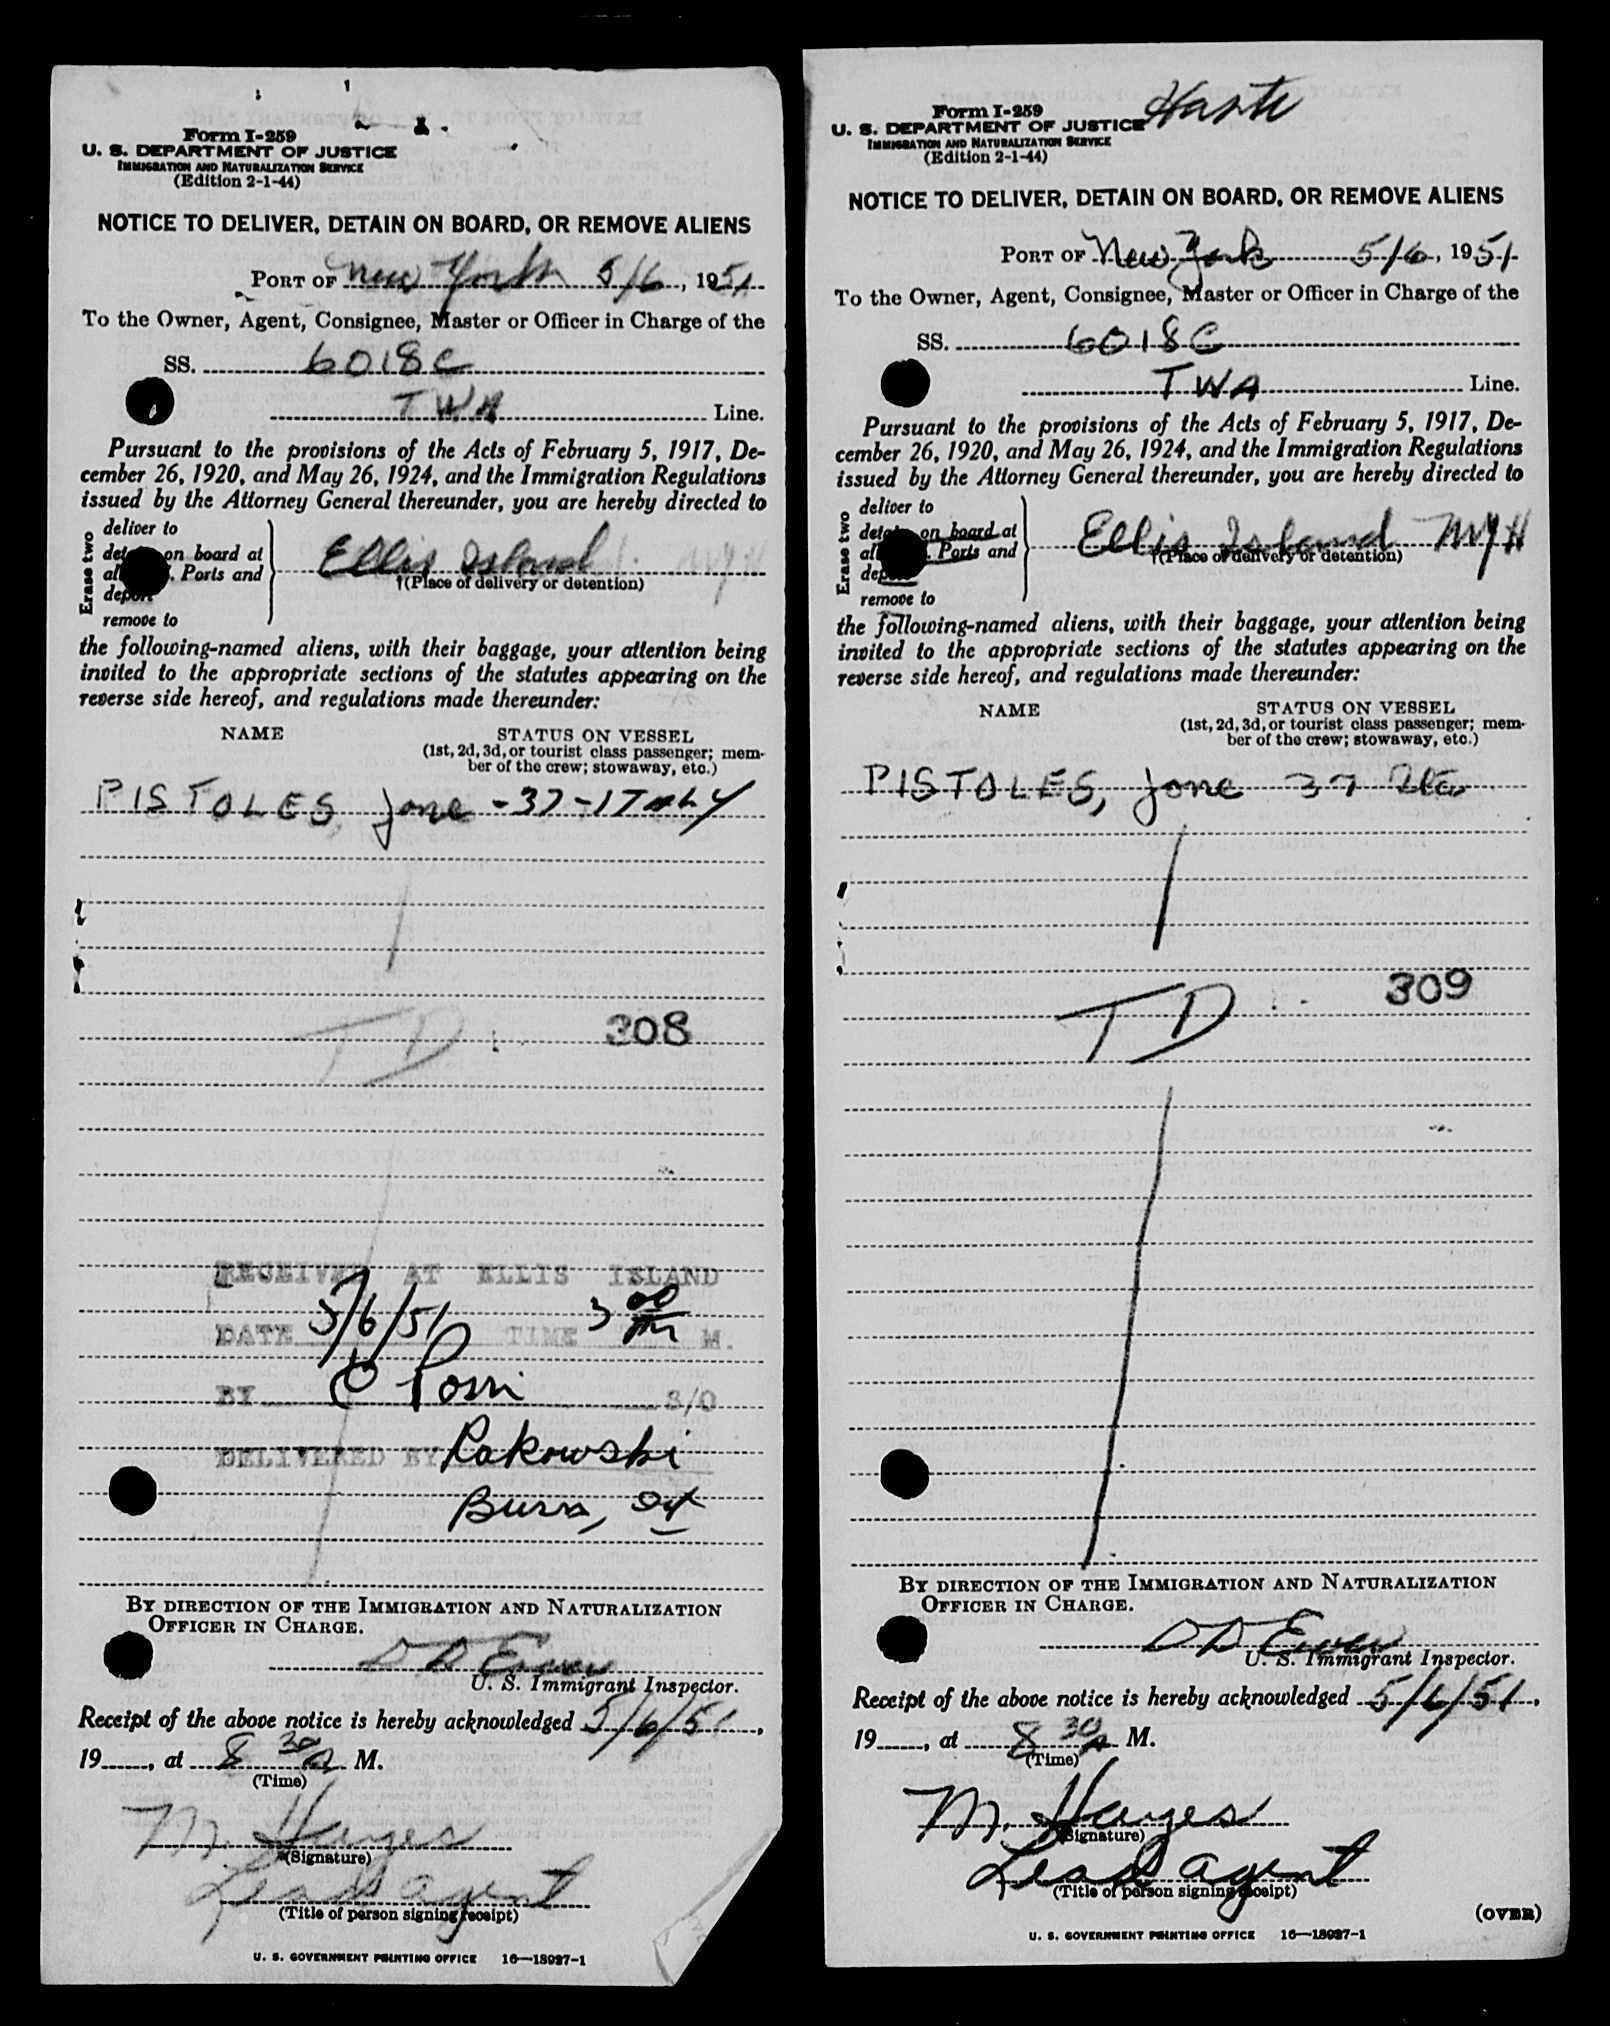 Form I-259
U. S. DEPARTMENT OF JUSTICE
IMMIGRATION AND NATURALIZATION SERVICE
(Edition 2-1-44)
NOTICE TO DELIVER, DETAIN ON BOARD, OR REMOVE ALIENS
PORT OF New York 5/6, 1951
To the Owner, Agent, Consignee, Master or Officer in Charge of the
SS. 6018C
TWA Line.
Pursuant to the provisions of the Acts of February 5, 1917, De-
cember 26, 1920, and May 26, 1924, and the Immigration Regulations
issued by the Attorney General thereunder, you are hereby directed to
Erase two
deliver to
on board at
Ports and
deport
remove to
Ellis Island NYH
†(Place of delivery or detention)
the following-named aliens, with their baggage, your attention being
invited to the appropriate sections of the statutes appearing on the
reverse side hereof, and regulations made thereunder:
NAME
STATUS ON VESSEL
(1st, 2d, 3d, or tourist class passenger; mem-
ber of the crew; stowaway, etc.)
PISTOLES, Jone - 37 - ITALY
TD
308
RECEIVED AT ELLIS ISLAND
DATE 5/6/51 TIME 3 00 M.
BY S/O
DELIVERED BY Rakowski
BY DIRECTION OF THE IMMIGRATION AND NATURALIZATION
OFFICER IN CHARGE.
U. S. Immigrant Inspector.
Receipt of the above notice is hereby acknowledged 5/6/51,
19, at 8 30 A M.
(Time)
M. Hayes
(Signature)
Lead agent
(Title of person signing receipt)
U. S. GOVERNMENT PRINTING OFFICE 16—18987-1
Form I-259
U. S. DEPARTMENT OF JUSTICE
IMMIGRATION AND NATURALIZATION SERVICE
(Edition 2-1-44)
NOTICE TO DELIVER, DETAIN ON BOARD, OR REMOVE ALIENS
PORT OF New York 5/6, 1951
To the Owner, Agent, Consignee, Master or Officer in Charge of the
SS. 6018C
TWA Line.
Pursuant to the provisions of the Acts of February 5, 1917, De-
cember 26, 1920, and May 26, 1924, and the Immigration Regulations
issued by the Attorney General thereunder, you are hereby directed to
Erase two
deliver to
on board at
Ports and
remove to
Ellis Island NYH
†(Place of delivery or detention)
the following-named aliens, with their baggage, your attention being
invited to the appropriate sections of the statutes appearing on the
reverse side hereof, and regulations made thereunder:
NAME
STATUS ON VESSEL
(1st, 2d, 3d, or tourist class passenger; mem-
ber of the crew; stowaway, etc.)
PISTOLES, Jone 37
TD
309
BY DIRECTION OF THE IMMIGRATION AND NATURALIZATION
OFFICER IN CHARGE.
U. S. Immigrant Inspector.
Receipt of the above notice is hereby acknowledged 5/6/51,
19, at 8 30 A M.
(Time)
M. Hayes
(Signature)
Lead agent
(Title of person signing receipt)
(OVER)
U. S. GOVERNMENT PRINTING OFFICE 16—18987-1